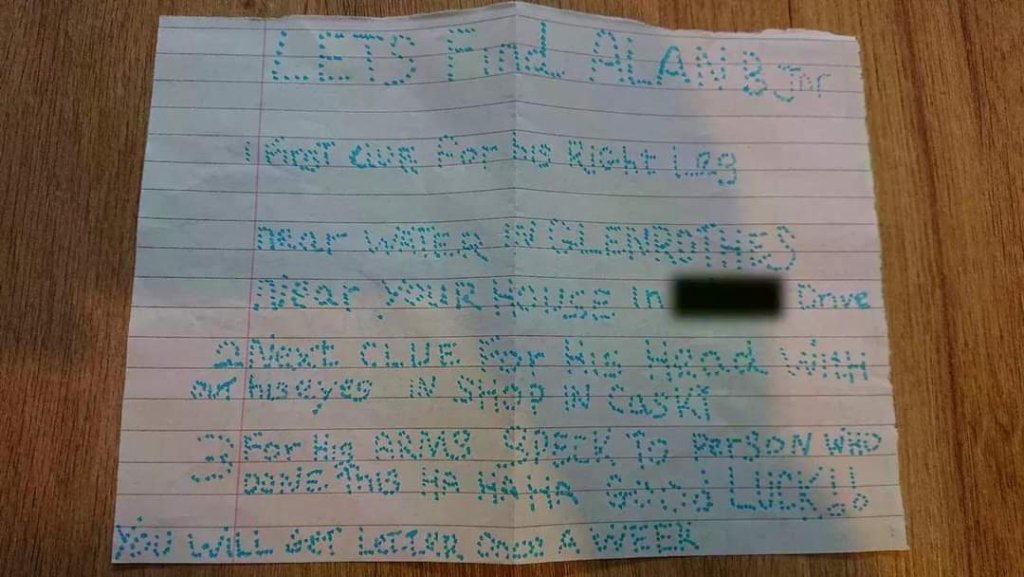 LETS Find ALAN B Jnr
1 First clue For his Right Leg
near WATER IN GLENROTHES
Near YOUR HOUSE In Drive
2 Next CLUE For His Head With
his eyes IN SHOP IN Cask
3 For His ARMS SPECK To Person WHO
DONE This HA HA HA LUCK!!
YOU WILL Get Letter Once A WEEK